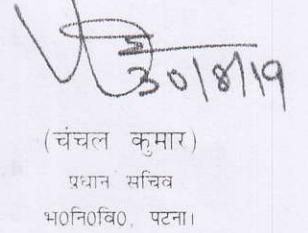 30/8/19
(चंचल कुमार)
प्रधान सचिव
भ०नि०वि०, पटना।